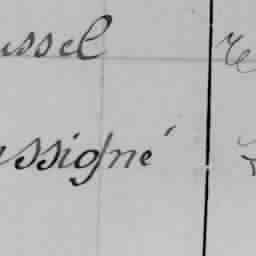 ussel
ussigné